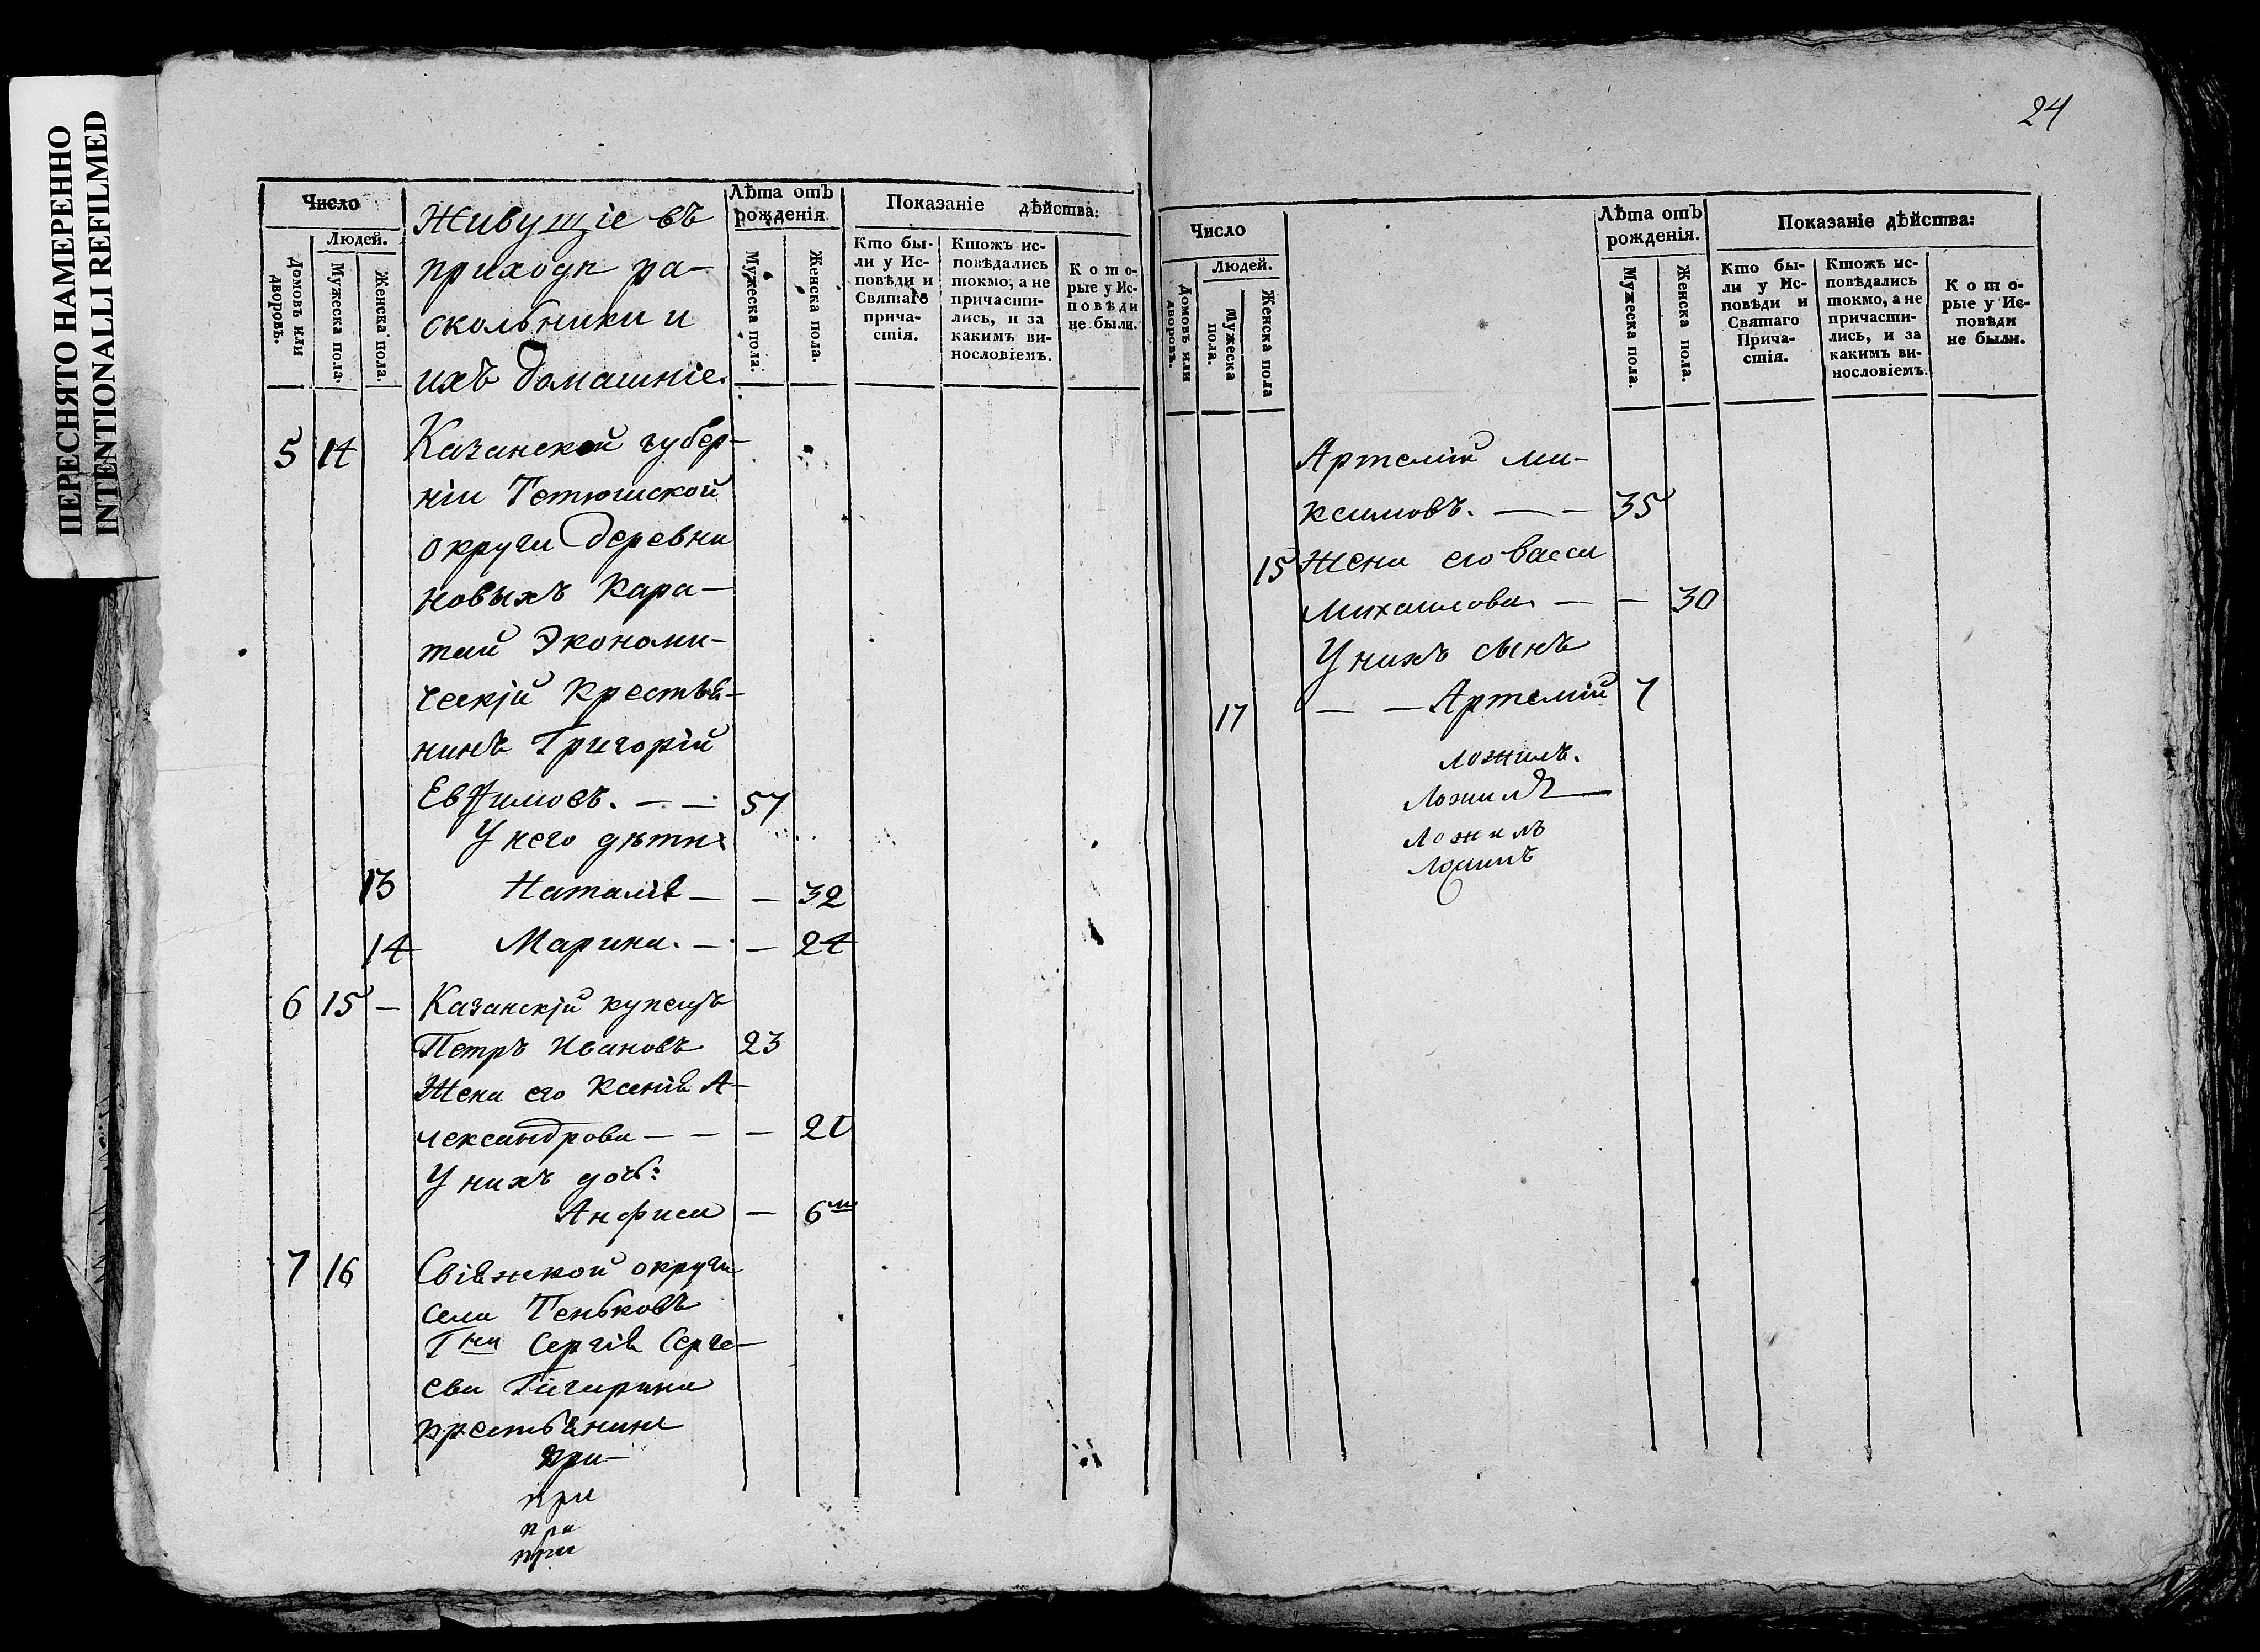 ПЕРЕСНЯТО НАМЕРЕННО
INTENTIONALLI REFILMED
Число
Людей.
Домовъ или дворовъ.
Мужеска пола.
Женска пола.
Живущіе въ
приходѣ ра-
скольники и
ихъ домашніе.
Лѣта отъ рожденія
Мужеска пола.
Женска пола.
Показаніе дѣйства:
Кто бы-
ли у Ис-
повѣди и
Святаго
прича-
стія.
Ктожъ ис-
повѣдались
токмо, а не
причасти-
лись, и за
какимъ ви-
нословіемъ.
Кото-
рые у Ис-
повѣди
не были.
5 14 Казанской губер-
ніи Тетюшской
округи деревни
Новыхъ Кара-
тай Экономи-
ческій крестья-
нинъ Григорій
Евфимовъ. — — 57
У него дѣти
13 Наталія — — 32
14 Марина. — — 24
6 15 — Казанскій купецъ
Петръ Ивановъ 23
Жена его Ксенія А-
лександрова — — — 21
У нихъ дочь:
Анфиса — 6 м
7 16 Свіяжской округи
села Теньковъ
Гна Сергія Серге-
ева Гагарина
крестьянинъ
при-
при
при
при
24
Число
Людей.
Домовъ или дворовъ.
Мужеска пола.
Женска пола
Лѣта отъ
рожденія.
Мужеска пола.
Женска пола.
Показаніе дѣйства:
Кто бы-
ли у Ис-
повѣди и
Святаго
Прича-
стія.
Ктожъ ис-
повѣдались
токмо, а не
причасти-
лись, и за
какимъ ви-
нословіемъ.
Кото-
рые у Ис-
повѣди
не были.
Артемій Ма-
ксимовъ. — — 35
15 Жена его Васса
Михаилова. — — 30
У нихъ сынъ
17 — — Артемій 7
ложилъ.
Ложилъ
Ложилъ